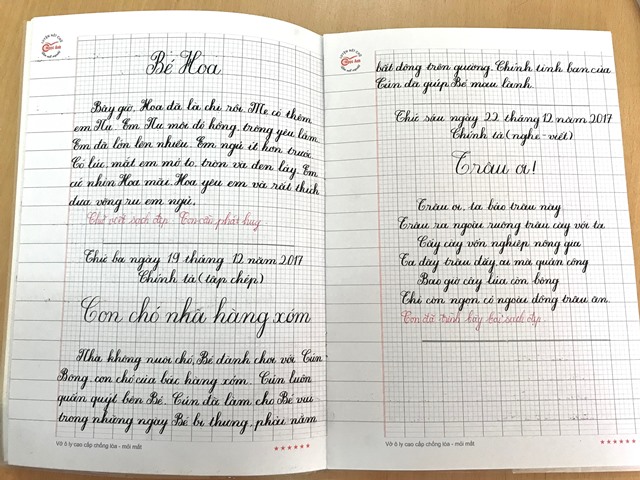 Bé Hoa
Bây giờ, Hoa đã là chị rồi. Mẹ có thêm
em Nụ. Em Nụ môi đỏ hồng, trông yêu lắm.
Em đã lớn lên nhiều. Em ngủ ít hơn trước.
Có lúc, mắt em mở to, tròn và đen láy. Em
cứ nhìn Hoa mãi. Hoa yêu em và rất thích
đưa võng ru em ngủ.
Chữ viết sạch đẹp. Con cần phát huy
Thứ ba ngày 19 tháng 12 năm 2017
Chính tả (tập chép)
Con chó nhà hàng xóm
Nhà không nuôi chó, Bé đành chơi với Cún
Bông, con chó của bác hàng xóm. Cún luôn
quấn quýt bên Bé. Cún đã làm cho Bé vui
trong những ngày Bé bị thương, phải nằm
Vở ô ly cao cấp chống lóa - mỏi mắt
bất động trên giường. Chính tình bạn của
Cún đã giúp Bé mau lành.
Thứ sáu ngày 22 tháng 12 năm 2017
Chính tả (nghe - viết)
Trâu ơi!
Trâu ơi, ta bảo trâu này
Trâu ra ngoài ruộng trâu cày với ta
Cấy cày vốn nghiệp nông gia
Ta đây trâu đấy, ai mà quản công
Bao giờ cây lúa còn bông
Thì còn ngọn cỏ ngoài đồng trâu ăn.
Con đã trình bày bài sạch đẹp.
Vở ô ly cao cấp chống lóa - mỏi mắt